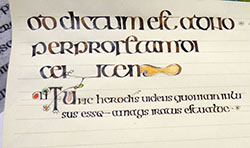 od dictum est a dño
per profetam di
cen tem
Tunc herodes videns quoniam inlu
sus esset a magis iratus est valde